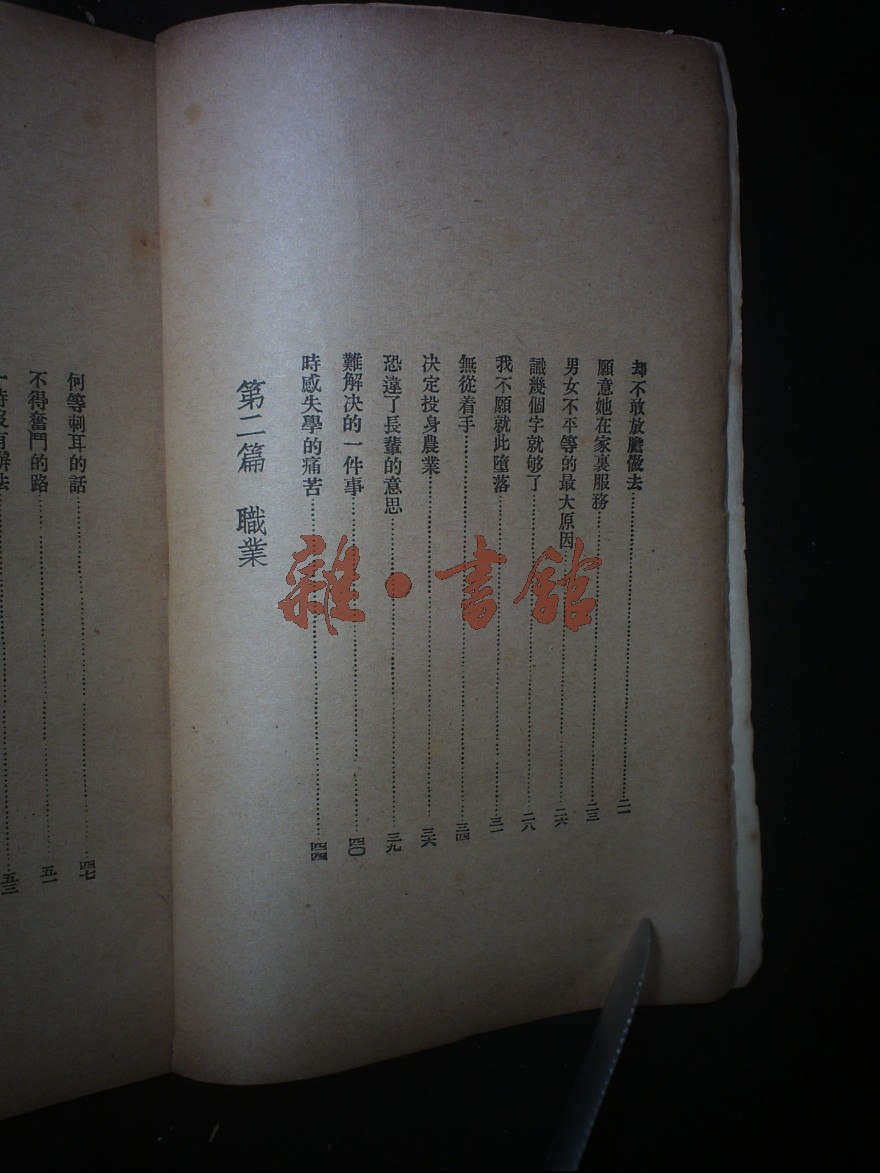 却不敢放膽做去……二一
願意她在家裏服務……二三
男女不平等的最大原因……二六
識幾個字就够了……二八
我不願就此墮落……三一
無從着手……三四
決定投身農業……三六
恐違了長輩的意思……三九
難解决的一件事……四〇
時感失學的痛苦……四四
第二篇 職業
何等刺耳的話……四七
不得奮鬥的路……五一
一時沒有辦法……五三
雜·書館